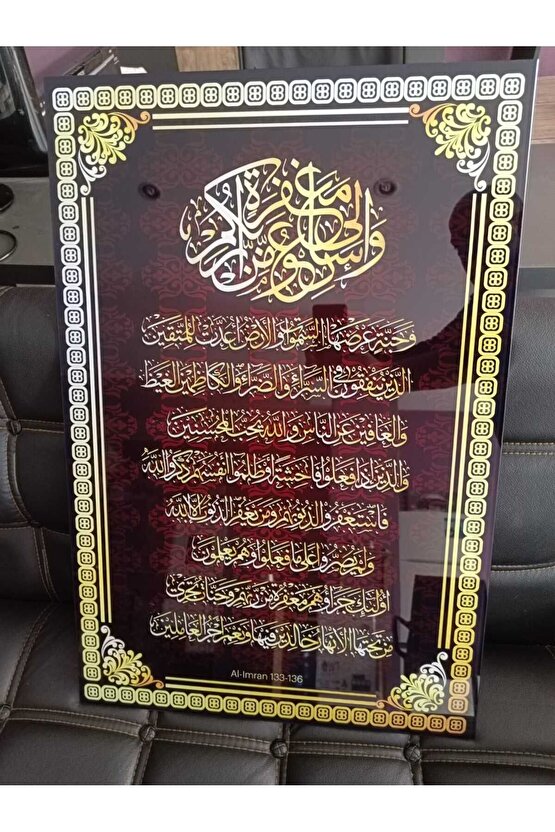 وسارعوا إلى مغفرة من ربكم
وَجَنَّةٍ عَرْضُهَا السَّمَوَاتُ وَالْأَرْضُ أُعِدَّتْ لِلْمُتَّقِينَ
الَّذِينَ يُنْفِقُونَ فِي السَّرَّاءِ وَالضَّرَّاءِ وَالْكَاظِمِينَ الْغَيْظَ
وَالْعَافِينَ عَنِ النَّاسِ وَاللَّهُ يُحِبُّ الْمُحْسِنِينَ
وَالَّذِينَ إِذَا فَعَلُوا فَاحِشَةً أَوْ ظَلَمُوا أَنْفُسَهُمْ ذَكَرُوا اللَّهَ
فَاسْتَغْفَرُوا لِذُنُوبِهِمْ وَمَنْ يَغْفِرُ الذُّنُوبَ إِلَّا اللَّهُ
وَلَمْ يُصِرُّوا عَلَى مَا فَعَلُوا وَهُمْ يَعْلَمُونَ
أُولَئِكَ جَزَاؤُهُمْ مَغْفِرَةٌ مِنْ رَبِّهِمْ وَجَنَّاتٌ تَجْرِي
مِنْ تَحْتِهَا الْأَنْهَارُ خَالِدِينَ فِيهَا وَنِعْمَ أَجْرُ الْعَامِلِينَ
Al-Imran 133-136